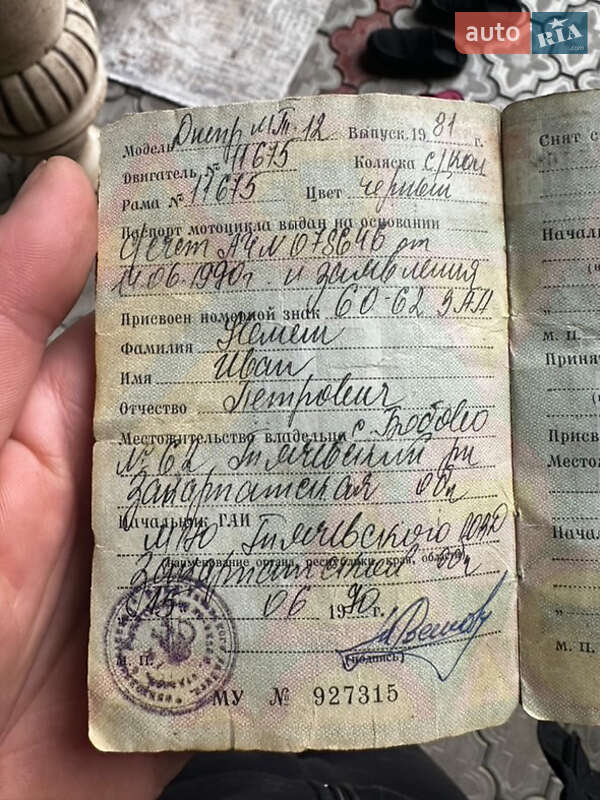 auto RIA
.com
Модель Днепр МТ. 12 Выпуск. 19 81 г.
Двигатель № 11675 Коляска с/кол
Рама № 11675 Цвет черный
Паспорт мотоцикла выдан на основании
счет АЧ № 078646 от
14.06.1990г. и заявления
Присвоен номерной знак 60-62 ЗАП
Фамилия Немеш
Имя Иван
Отчество Петрович
Местожительство владельца с. Бобово
№ 62 Тячевский рн
Закарпатская обл
Начальник ГАИ
МРЭО Тячевского РОВД
(наименование органа, республики, края, области)
Закарпатской обл
06 1990 г.
М. П. (подпись)
МУ № 927315
Снят с
Началь
М. П.
Принят
Присв
Местож
Начал
М. П.